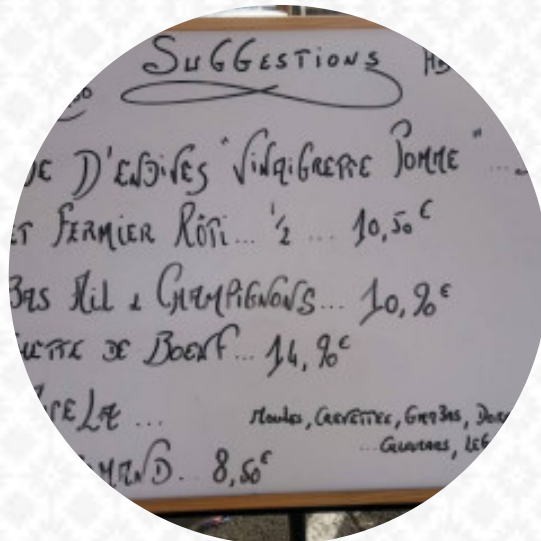 SUGGESTIONS
D'ENDIVES "VINAIGRETTE POMME" ...
FERMIER RÔTI... 1/2 ... 10,50€
AIL & CHAMPIGNONS... 10,90€
DE BOEUF... 14,90€
... MOULES, CREVETTES, GAMBAS,
... CALAMARS,
... 8,50€